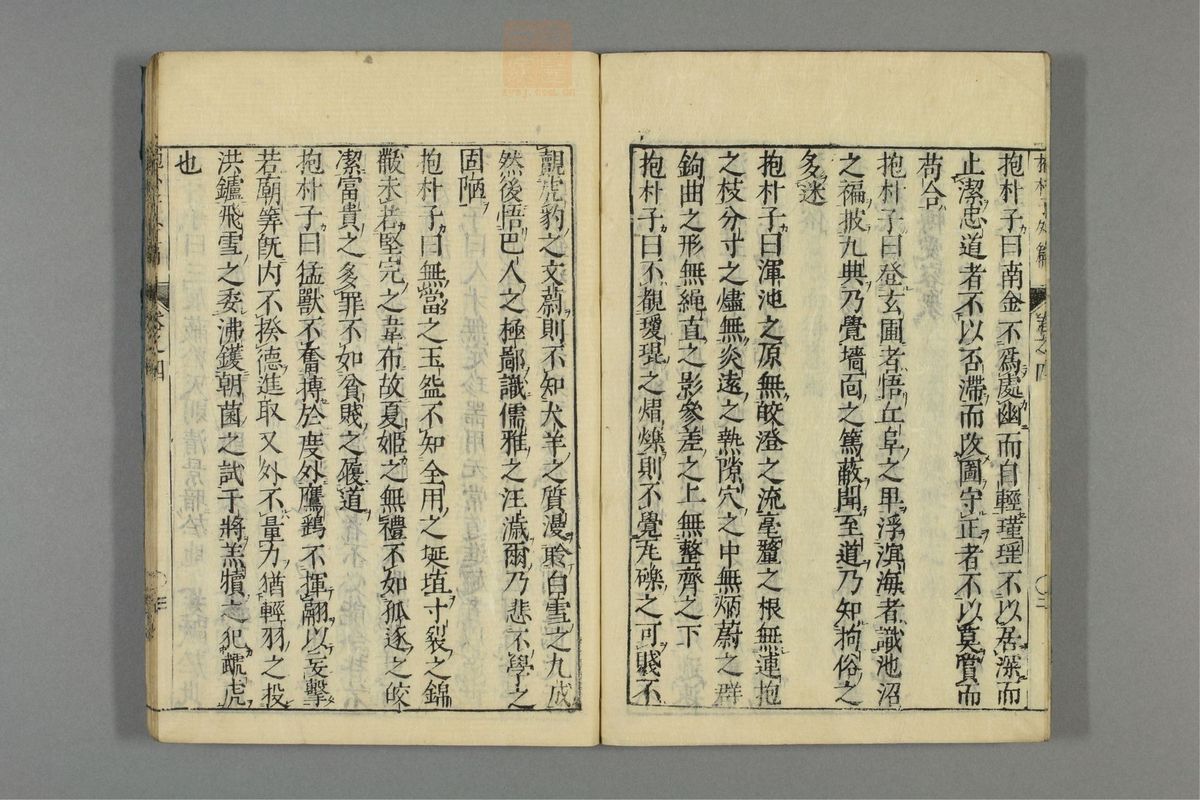 抱朴子曰南金不爲處幽而自輕瑾瑶不以居深而
止潔忠道者不以否滯而改圖守正者不以莫賞而
苟合
抱朴子曰登玄圃者悟丘阜之卑浮溟海者識池沼
之褊披九典乃覺墻面之篤蔽聞至道乃知拘俗之
多迷
抱朴子曰渾沌之原無皎澄之流毫釐之根無連抱
之枝分寸之燼無炎遠之熱隙穴之中無炳蔚之群
鉤曲之形無繩直之影參差之上無整齊之下
抱朴子曰不覩瓊琨之熠爍則不覺瓦礫之可賤不
覿虎豹之文蔚則不知犬羊之質漫聆白雪之九成
然後悟巴人之極鄙識儒雅之汪濊爾乃悲不學之
固陋
抱朴子曰無當之玉盌不如全用之埏埴寸裂之錦
黻未若堅完之韋布故夏姬之無禮不如孤逐之皎
潔富貴之多罪不如貧賤之履道
抱朴子曰猛獸不奮搏於度外鷹鷂不揮翮以妄擊
若廟筭旣内不揆德進取又外不量力猶輕羽之投
洪鑪飛雪之委沸鑊朝菌之試干將羔犢之犯虓虎
也
抱朴子外篇
卷之四